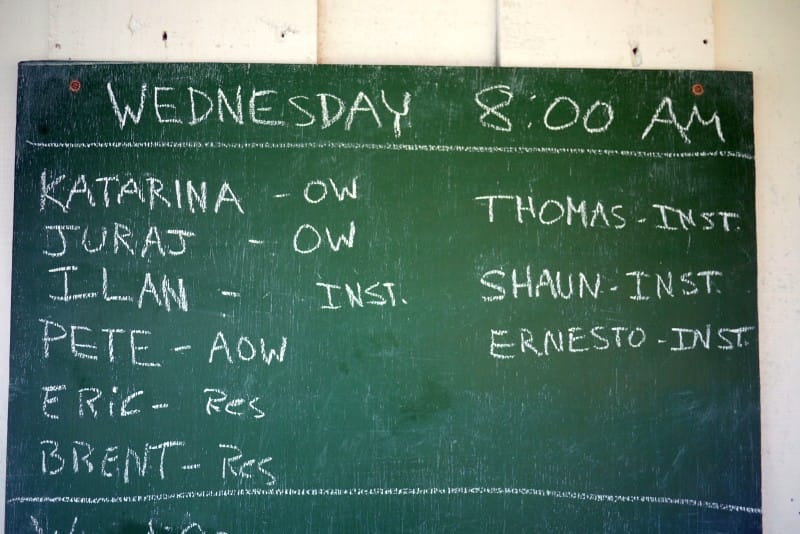 WEDNESDAY 8:00 AM
KATARINA - OW
JURAJ - OW
ILAN - INST.
PETE - AOW
ERIC - Res
BRENT - Res
THOMAS - INST.
SHAUN - INST.
ERNESTO - INST.